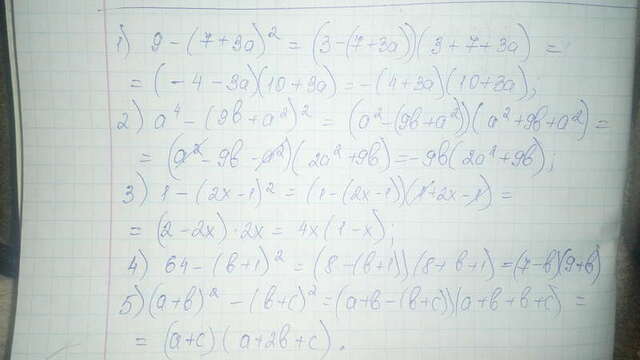 1) 9 - (7+3a)² = (3-(7+3a))(3+7+3a) =
= (-4-3a)(10+3a) = -(4+3a)(10+3a);
2) a⁴ - (9b+a²)² = (a²-(9b+a²))(a²+9b+a²) =
= (a²-9b-a²)(2a²+9b) = -9b(2a²+9b);
3) 1-(2x-1)² = (1-(2x-1))(1+2x-1) =
= (2-2x)·2x = 4x(1-x);
4) 64-(b+1)² = (8-(b+1))(8+b+1) = (7-b)(9+b)
5) (a+b)² - (b+c)² = (a+b-(b+c))(a+b+b+c) =
= (a+c)(a+2b+c).